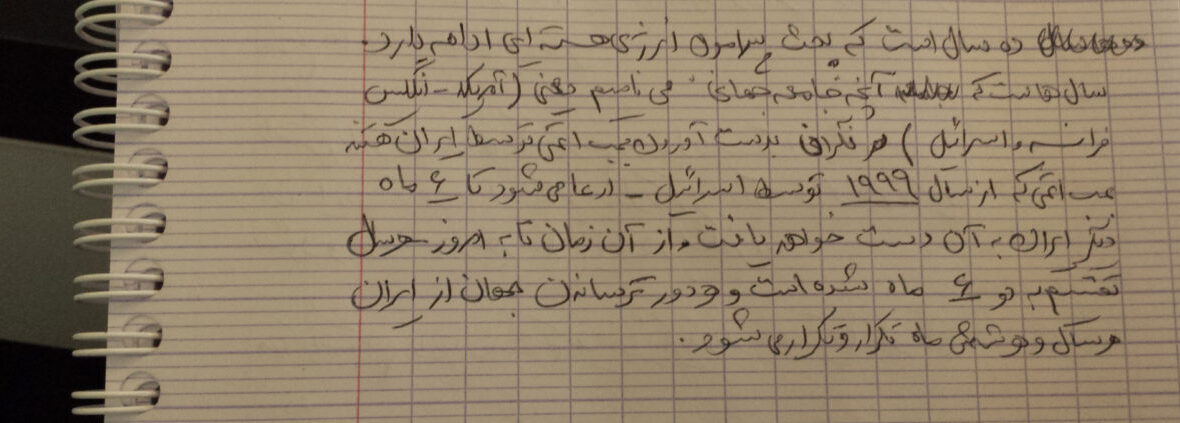 ده سال است که بحث پیرامون انرژی هسته ای ادامه دارد.
سال هاست که آنچه جامعه جهانی می نامیم یعنی (آمریکا - انگلیس
فرانسه و اسرائیل) نگران بدست آوردن بمب اتمی توسط ایران هستند
بمب اتمی که از سال ۱۹۹۹ توسط اسرائیل - ادعا می شود تا ۶ ماه
دیگر ایران به آن دست خواهد یافت و از آن زمان تا به امروز هر سال
تقسیم به دو ۶ ماه شده است و دور ترساندن جهان از ایران
هر سال و هر شش ماه تکرار و تکرار می شود.